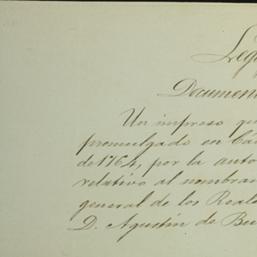 Documen
Un impreso qu
promulgado en Cá
de 1764, por la auto
relativo al nombram
general de los Reale
D. Agustin de Bu